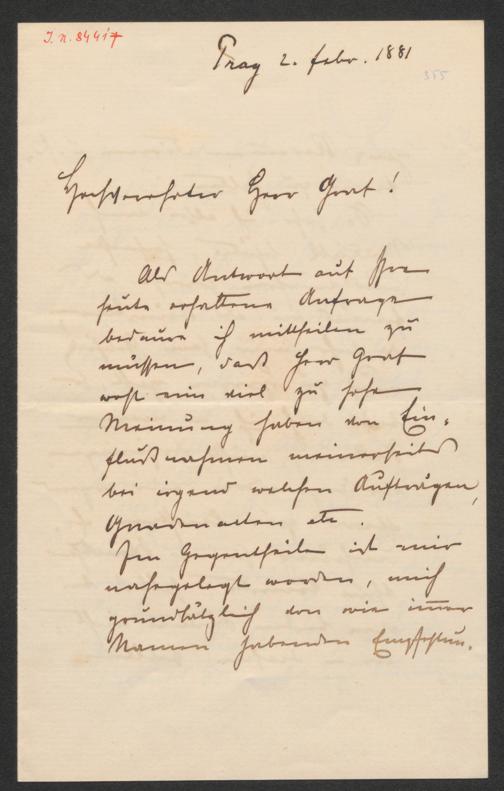 J. N. 84417
Prag 2. febr. 1881
355
Hochverehrter Herr Graf!
Als Antwort auf Ihre
heute erhaltene Anfrage
bedaure ich mittheilen zu
müssen, daß Herr Graf
wohl eine viel zu hohe
Meinung haben von Ein-
flußnahmen meinerseits
bei irgend welchen Aufträgen,
Gnadenakten etc.
Im Gegentheile ist mir
nahegelegt worden, mich
grundsätzlich von wie im̅er
Namen habenden Empfehlun-